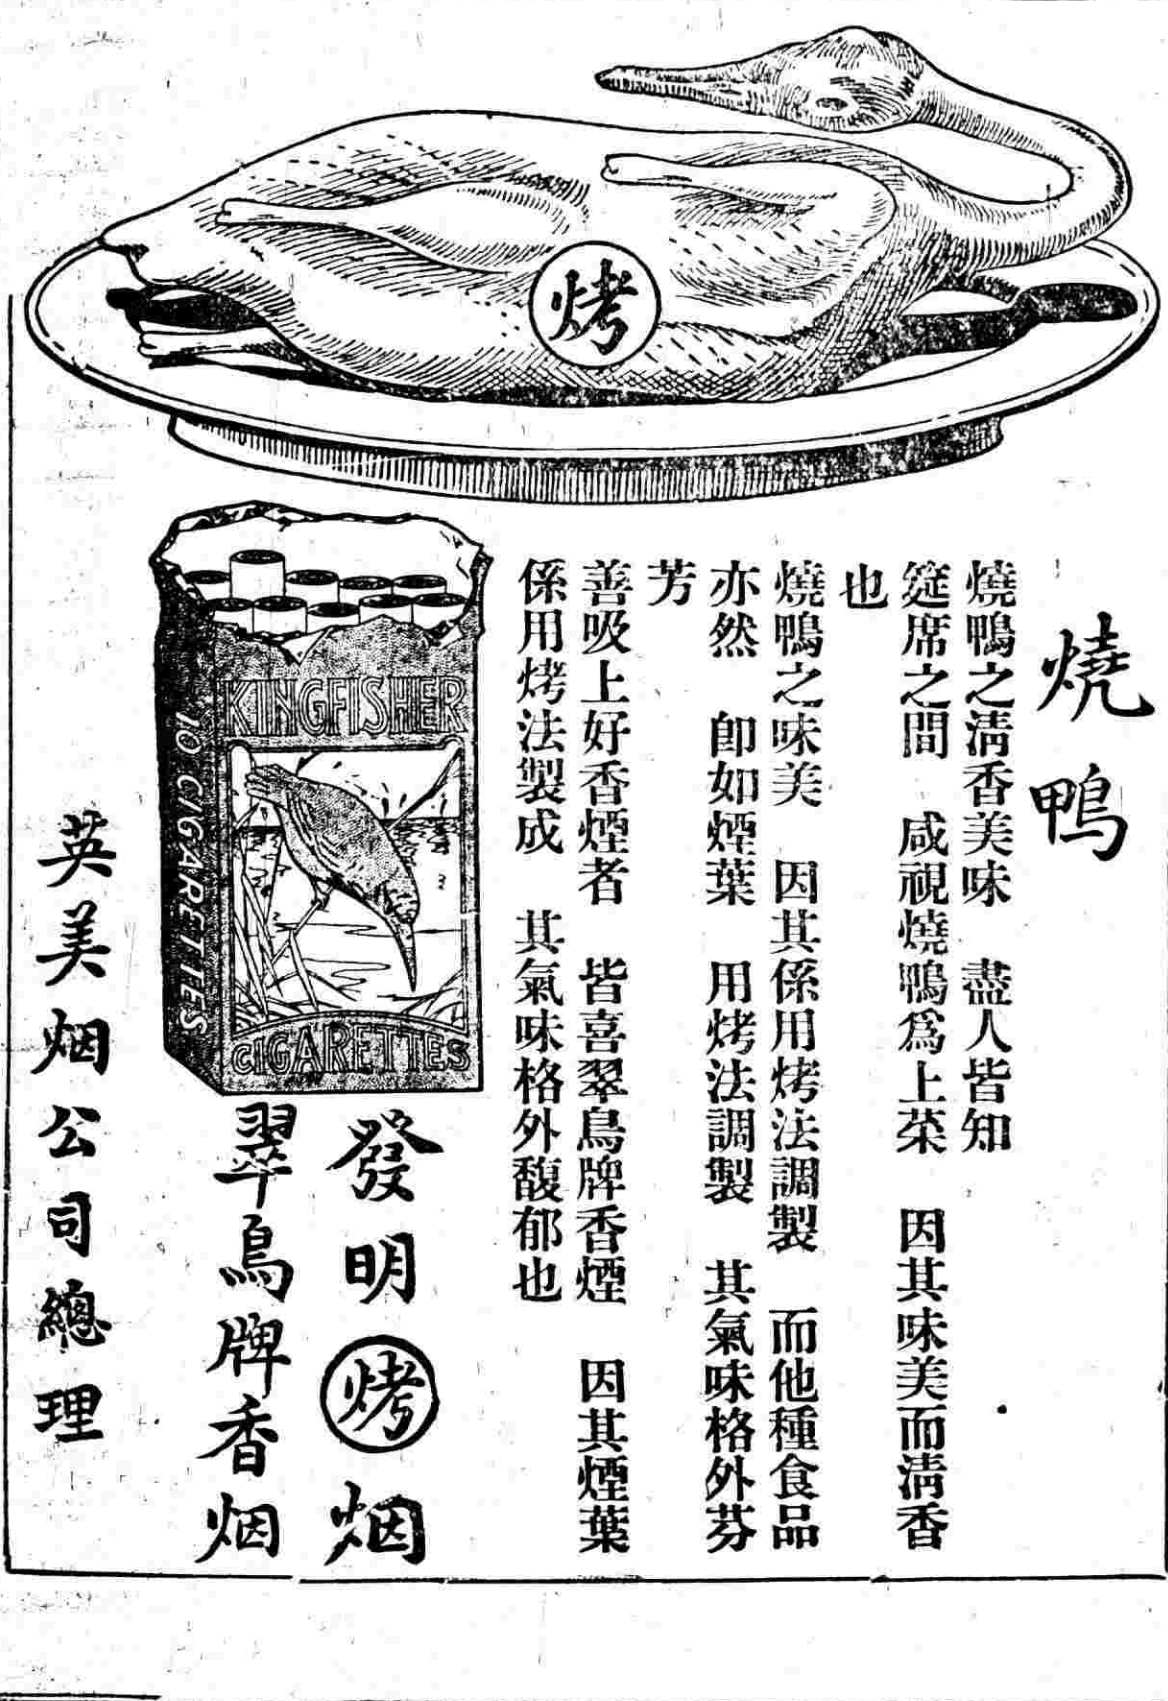 烤
燒鴨
燒鴨之清香美味　盡人皆知
筵席之間　咸視燒鴨爲上菜　因其味美而清香
也
燒鴨之味美　因其係用烤法調製　而他種食品
亦然　即如煙葉　用烤法調製　其氣味格外芬
芳
善吸上好香煙者　皆喜翠鳥牌香煙　因其煙葉
係用烤法製成　其氣味格外馥郁也
KINGFISHER
CIGARETTES
10 CIGARETTES
發明烤烟
翠鳥牌香烟
英美烟公司總理